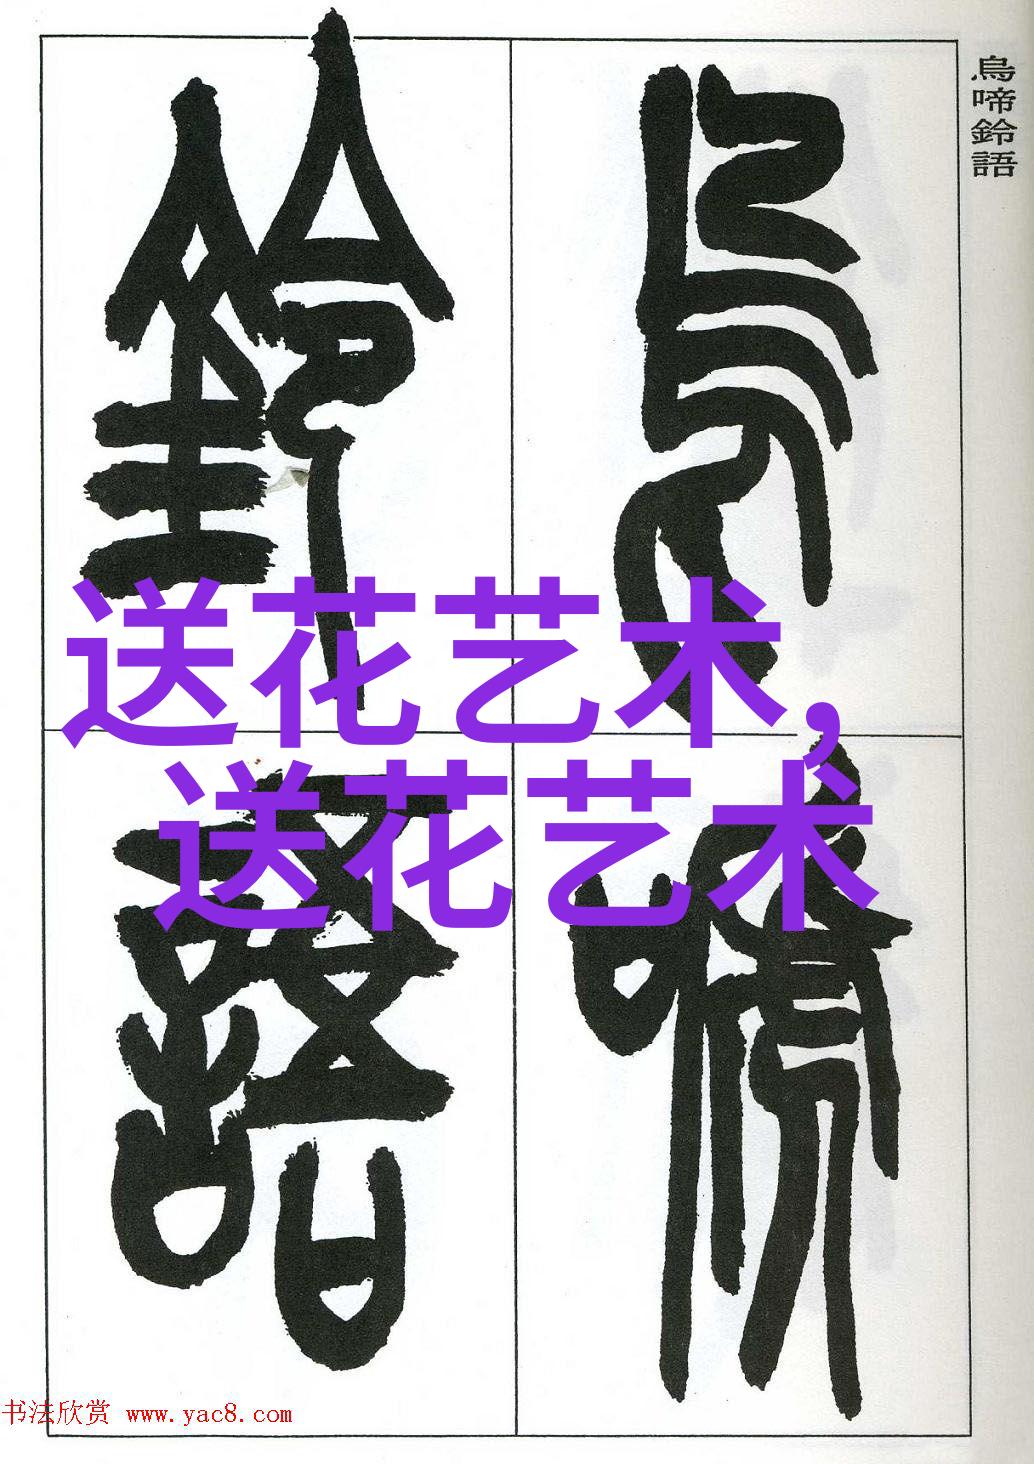 烏啼鈴語
烏啼
鈴語
送花艺术,
送花艺术
书法欣赏 www.yac8.com